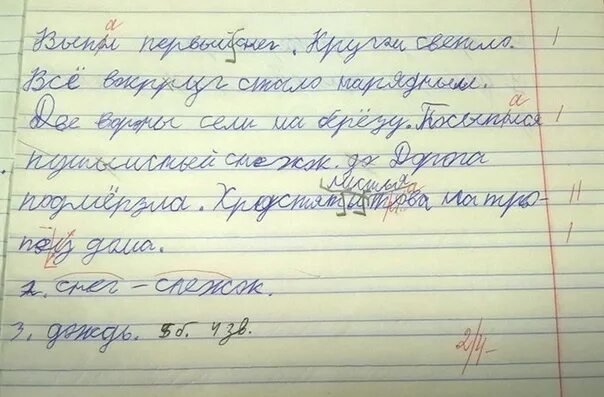 Выпал первый снег. Кругом светло.
Всё вокруг стало нарядным.
Две вороны сели на берёзу. Посыпался
пушистый снежок. Дорога
подмёрзла. Хрустят листья и трава на тро-
пе из дома.
2. снег – снежок.
3. дождь. 5б. 4 зв.
2/4-